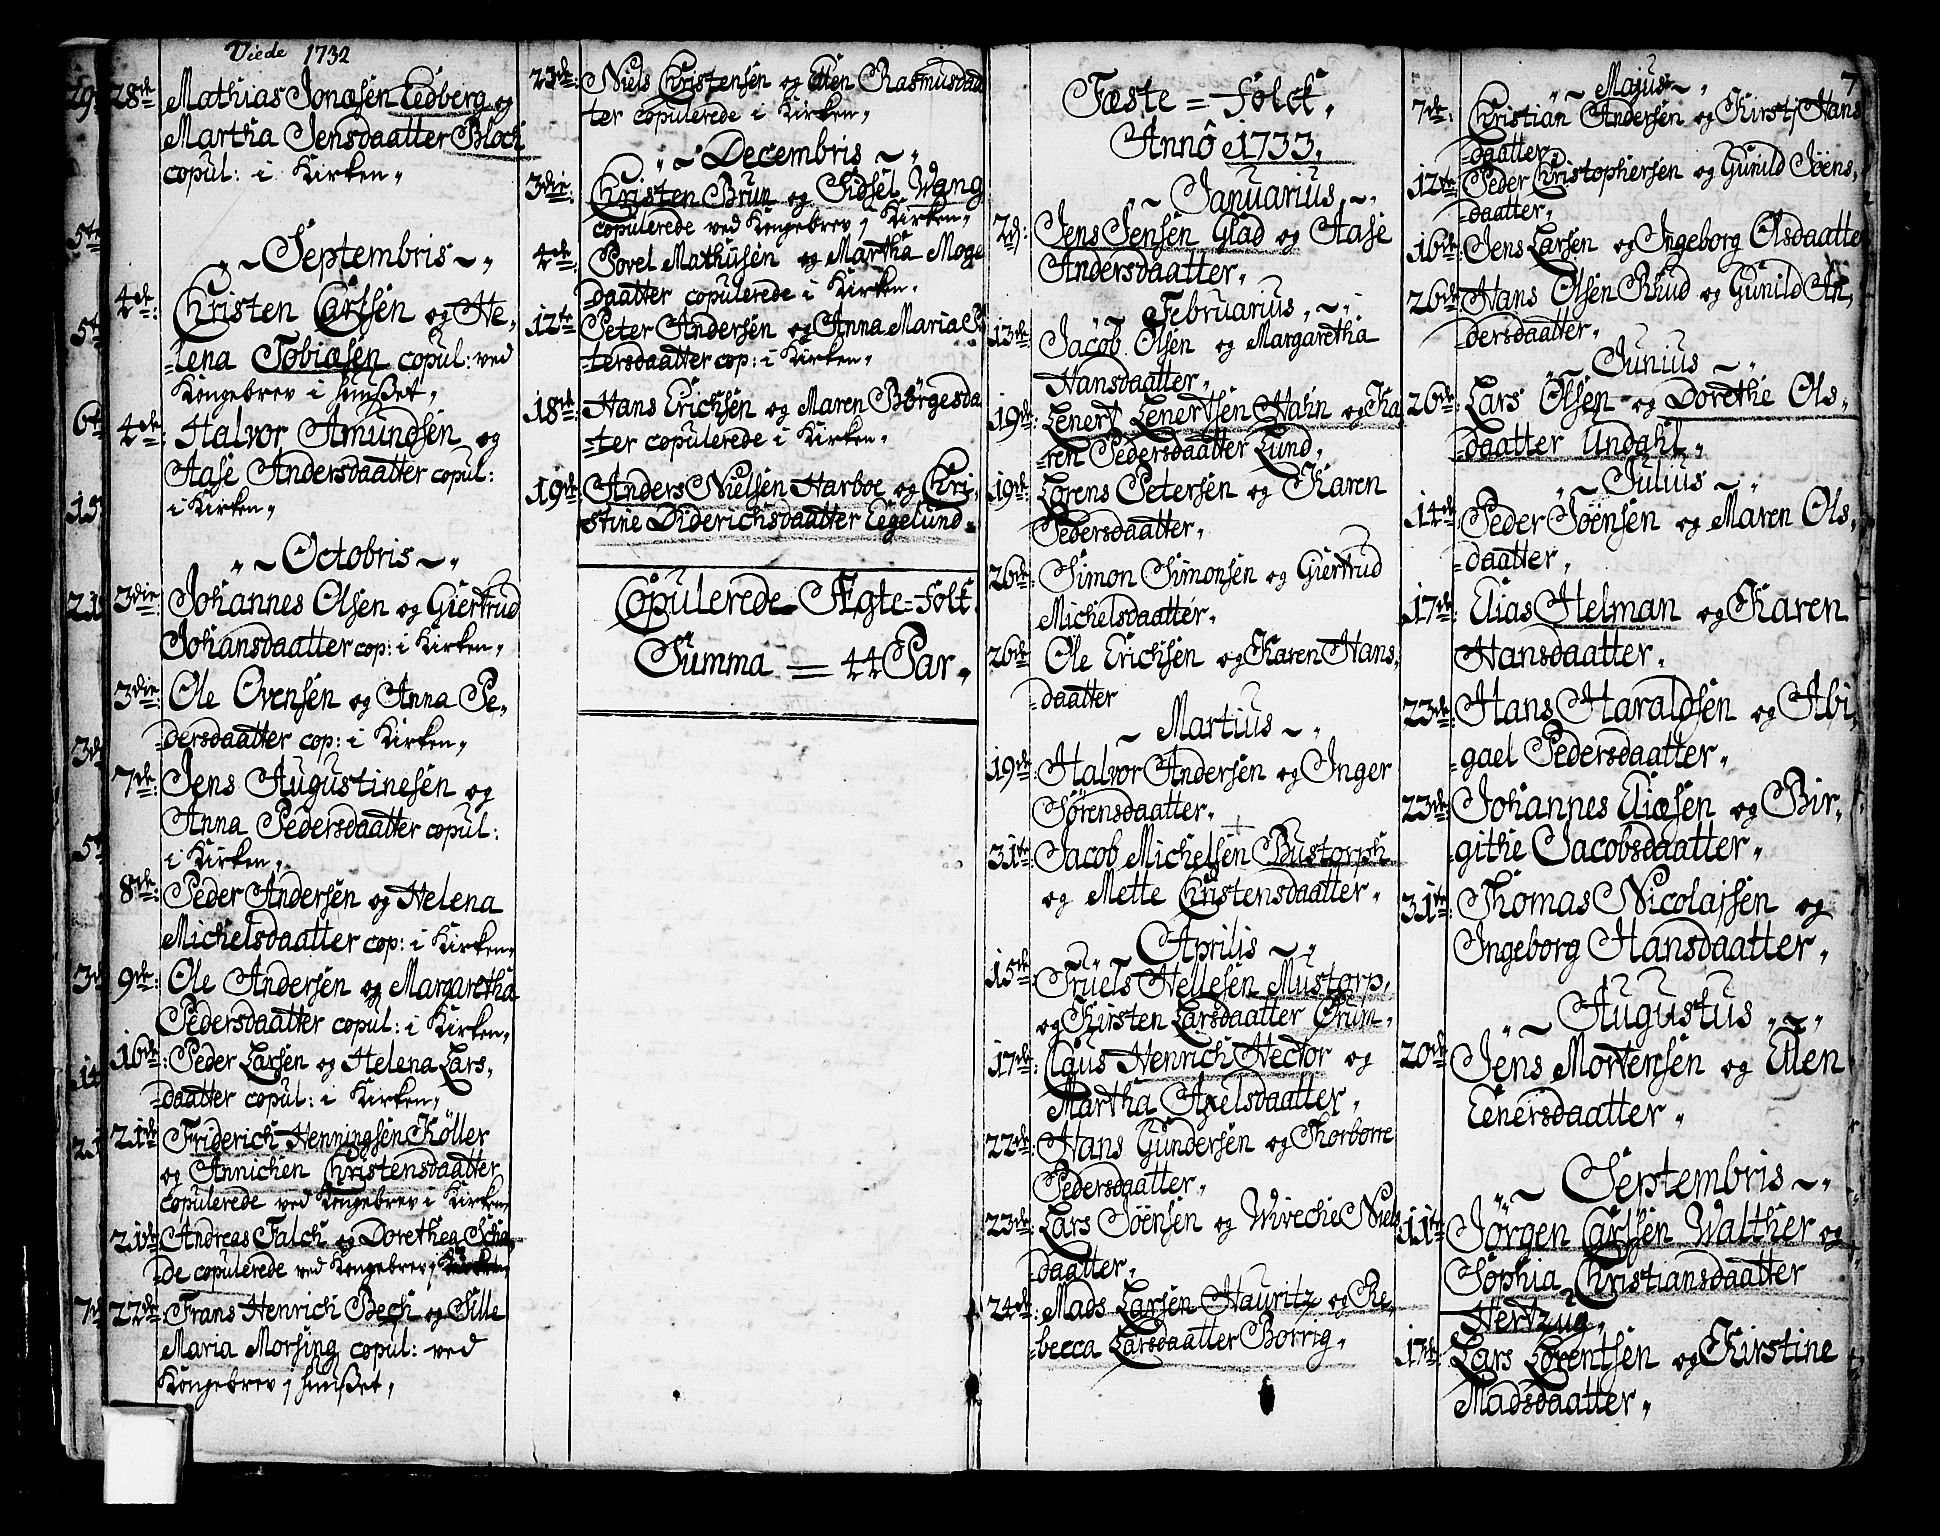 Viede 1732
28de Mathias Jonæsen Eedberg og
Martha Jensdaatter Bloch
copul: i Kirken,,
,,~Septembris~,,
4de: Christen Carlsen og He-
-lena Tobiæsen copul: ved
Kongebrev i huuset,,
4de: Halvor Amundsen og
Aase Andersdaatter copul:
i Kirken,,
,,~Octobris~,,
3die Johannes Olsen og Giertrud
Johansdaatter cop: i Kirken,,
3die: Ole Ovensen og Anna Pe-
-dersdaatter cop: i Kirken,,
7de: Jens Augustinesen og
Anna Pedersdaatter copul:
i Kirken,,
8de: Peder Andersen og Helena
Michelsdaatter cop: i Kirken,,
9de: Ole Andersen og Margaretha
Pedersdaatter copul: i Kirken,,
16de: Peder Larsen og Helena Lars-
-daatter copul: i Kirken,,
21de: Friderich Henningsen Köller
og Annichen Christensdaatter
copulerede ved Kongebrev i Kirken
21de: Andreas Falch og Dorethea Scha-
-de copulerede ved Kongebrev j
22de: Frans Henrich Bech og Sille
Maria Morsing copul: ved
Kongebrev j huuset,
23de: Niels Christensen og Ellen Rasmusdaat
ter copulerede i Kirken,,
,,~Decembris~,,
3die: Christen Brun og Sidsel Wang
copulerede ved Kongebrev j Kirken,,
4de: Povel Mathisen og Martha Moge
daatter copulerede i Kirken,,
12te: Peter Andersen og Anna Maria P
tersdaatter cop: i Kirken,,
18de: Hans Erichsen og Maren Börgesda
-ter copulerede i Kirken,,
19de: Anders Nielsen Harboe og Chri-
stine Diderichsdaatter Eegelund=
Copulerede Ægte=folk,
Summa = 44 Par,,
Fæste=folck,
Annô 1733,
~Januarius~,,
2d: Jens Jensen Glad og Aase
Andersdaatter,,
,,~Februarius,~,,
13de: Jacob Olsen og Margaretha
Hansdaatter,,
19de: Lenert Lenertsen Hahn og Ka
-ren Pedersdaatter Lund,
19de: Lorens Petersen og Karen
Pedersdaatter,,
26de: Simon Simonsen og Giertrud
Michelsdaatter,
26de: Ole Erichsen og Karen Hans-
daatter
~Martius~,,
19de: Halvor Andersen og Inger
Sörensdaatter,,
31te: Jacob Michelsen Bustorph
og Mette Christensdaatter,,
~Aprilis~,,
15de: Truels Hellesen Mustorp,
og Kirsten Larsdaatter Orum,
17de: Claus Henrich Hector og
Martha Axelsdaatter,
22de: Hans Gundersen og Thorborre
Pedersdaatter,,
23de: Lars Jöensen og Wiveche Niels
daatter,
24de: Mads Larsen Hauritz og Re-
-becca Larsdaatter Borrig,,
7
,,~Majus~,,
7de: Christian Andersen og Kirstj Hans
-daatter
12te: Peder Christophersen og Gunild Jöens-
-daatter,,
16de: Jens Larsen og Ingeborg Olsdaatter
26de: Hans Olsen Rhud og Gunild An-
dersdaatter,
,,~Junius~,,
26de: Lars Olsen og Dorethe Ols-
daatter Undahl,
,,~Julius~,,
14de: Peder Jöensen og Maren Ols-
daatter,
17de: Elias Helman og Karen
Hansdaatter,
23de: Hans Haraldsen og Abi-
-gael Pedersdaatter,
23de: Johannes Eliæsen og Bir-
-githe Jacobsdaatter,,
31te: Thomas Nicolajsen og
Ingeborg Hansdaatter,
,,~Augustus,,~,,
20de: Jens Mortensen og Ellen
Eenersdaatter,,
,,~Septembris~,,
11te: Jörgen Carlsen Walther og
Sophia Christiansdaatter
Hertzug,
17de: Lars Lorentsen og Kirstine
Madsdaatter,,